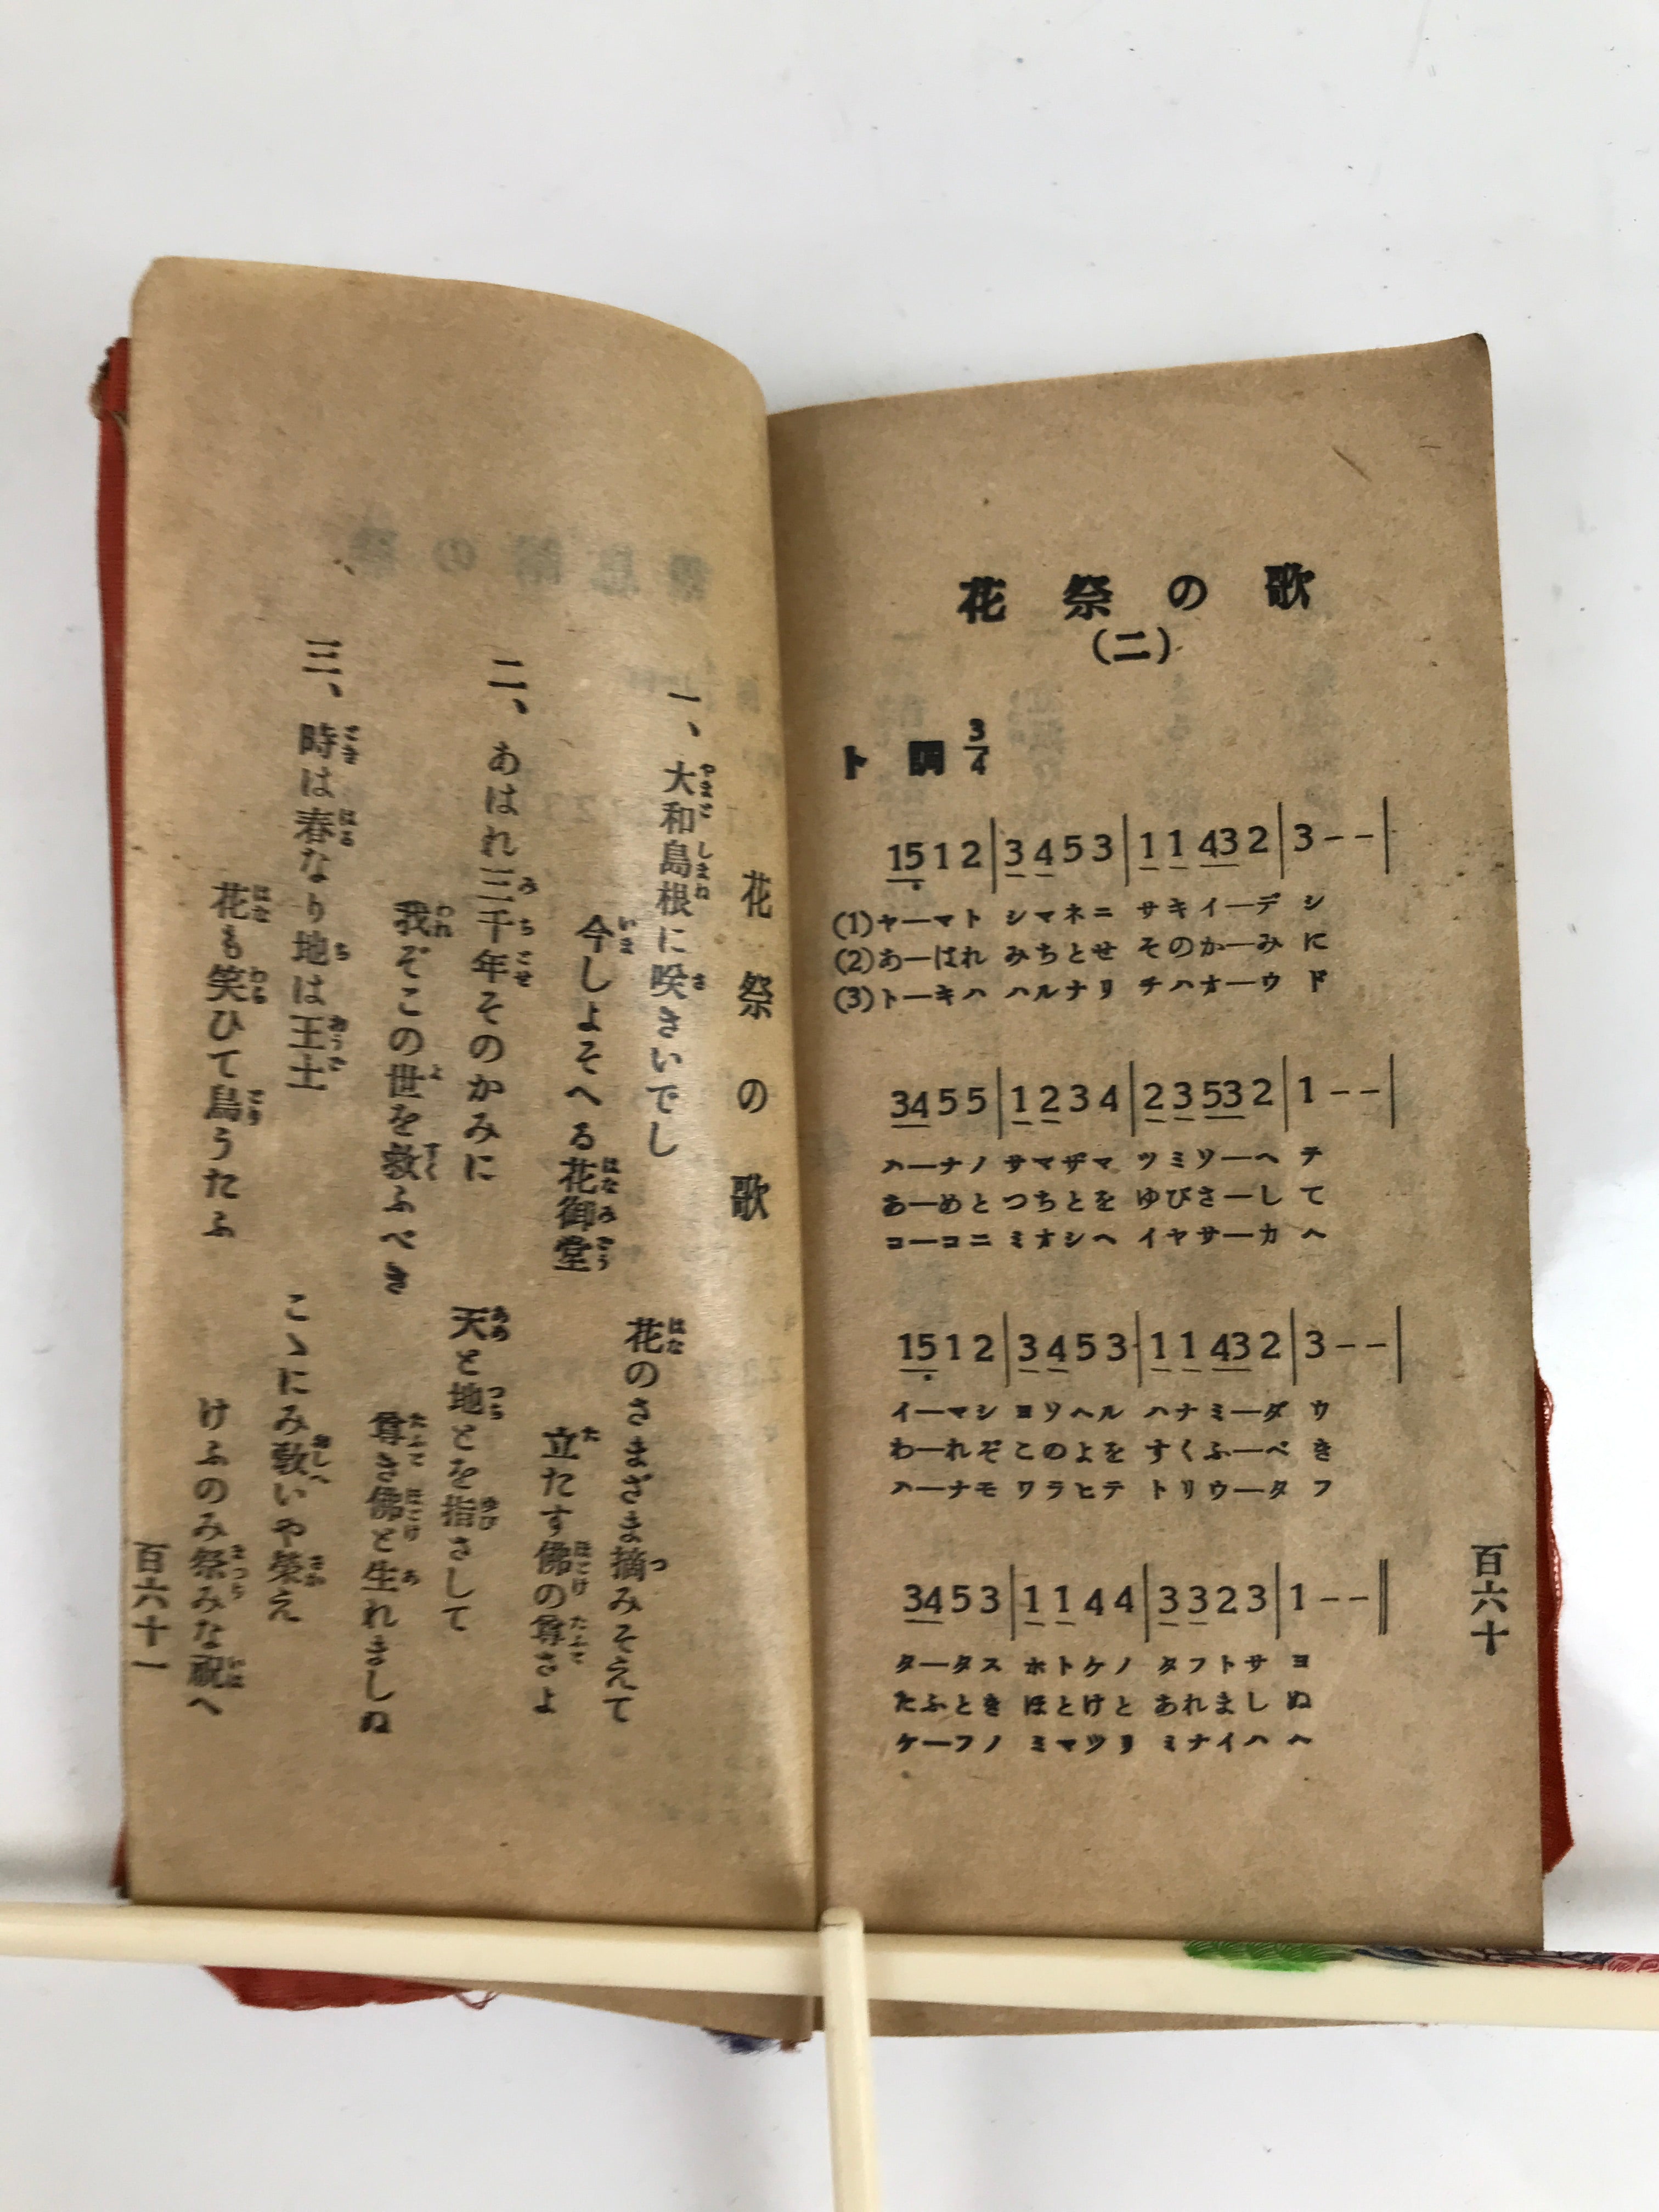 花祭の歌
(二)
ト調 3/4
15 1 2 | 3 4 5 3 | 1 1 43 2 | 3 - - |
(1)ヤーマト シマネニ サキイーデ シ
(2)あーはれ みちとせ そのかーみ に
(3)トーキハ ハルナリ チハオーウ ド
34 5 5 | 1 2 3 4 | 2 3 53 2 | 1 - - |
ハーナノ サマザマ ツミソーヘ テ
あーめと つちとを ゆびさーし て
コーコニ ミオシヘ イヤサーカ ヘ
15 1 2 | 3 4 5 3 | 1 1 43 2 | 3 - - |
イーマシ ヨソヘル ハナミーダ ウ
わーれぞ このよを すくふーべ き
ハーナモ ワラヒテ トリウータ フ
34 5 3 | 1 1 4 4 | 3 3 2 3 | 1 - - ‖
タータス ホトケノ タフトサ ヨ
たふとき ほとけと あれまし ぬ
ケーフノ ミマツリ ミナイハ ヘ
百六十
花祭の歌
一、大和島根に咲さいでし 花のさまざま摘みそえて
今しよそへる花御堂 立たす佛の尊さよ
二、あはれ三千年そのかみに 天と地とを指さして
我ぞこの世を救ふべき 尊き佛と生れましぬ
三、時は春なり地は王土 こゝにみ敎いや榮え
花も笑ひて鳥うたふ けふのみ祭みな祝へ
百六十一